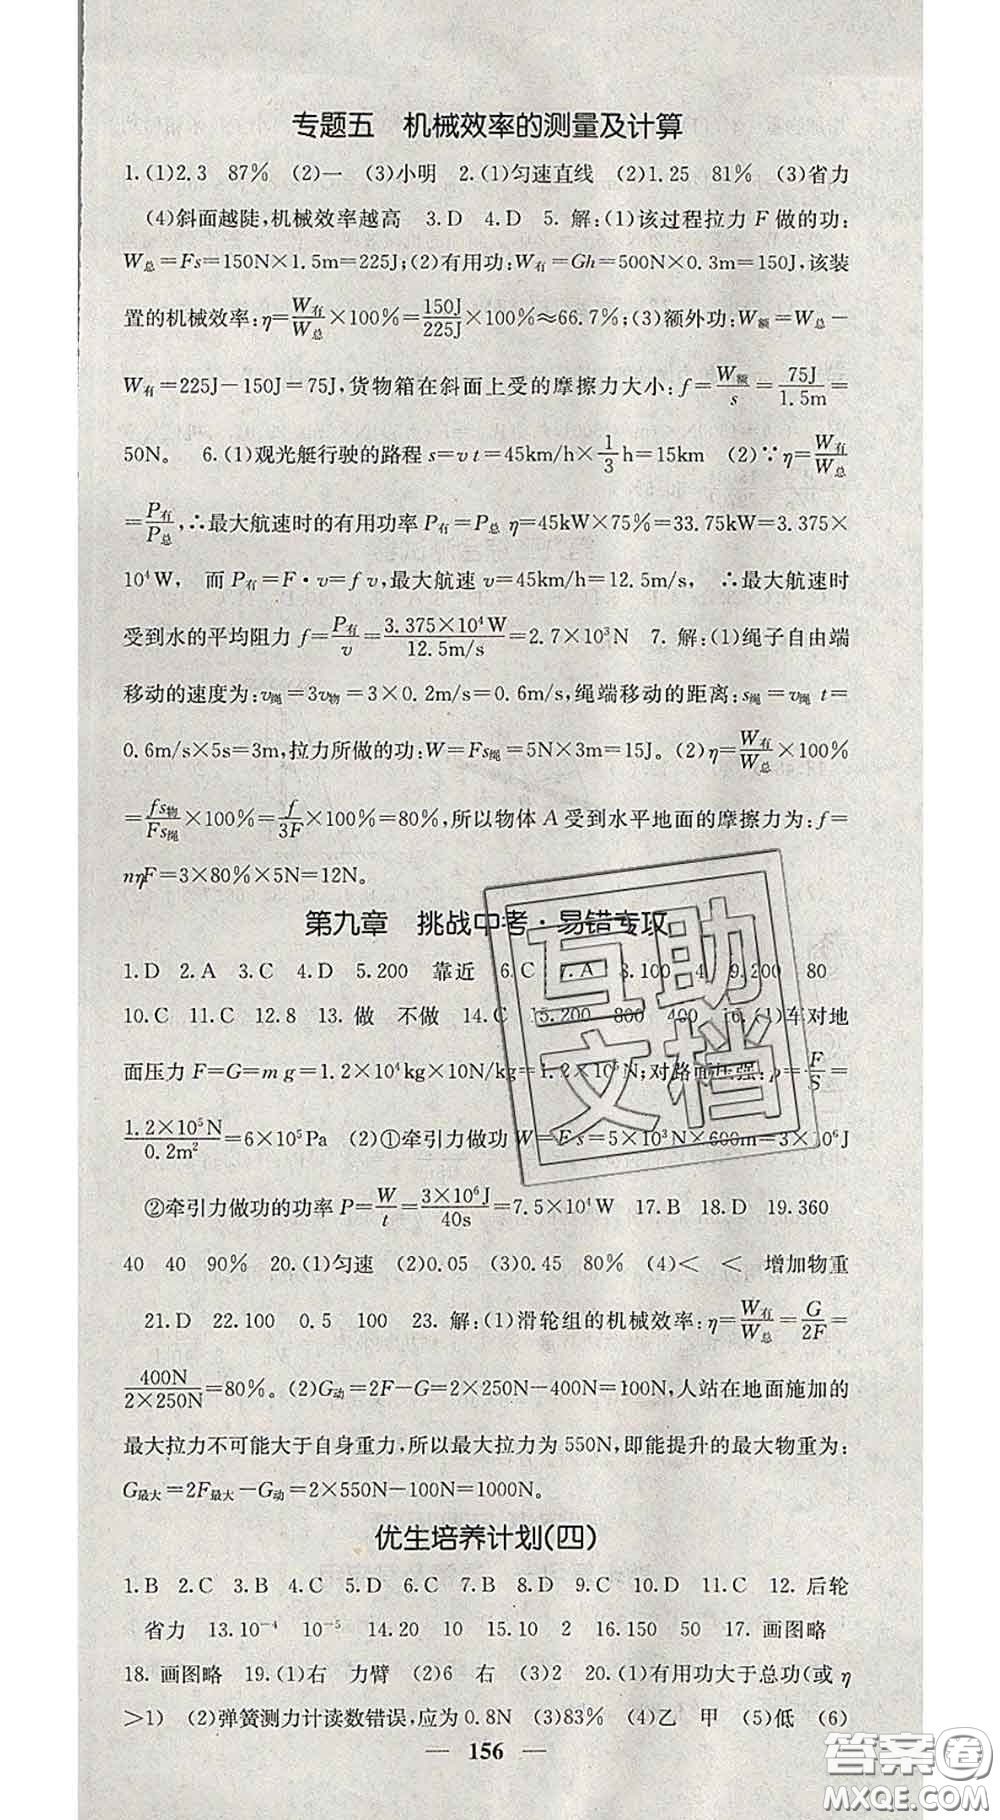 专题五　机械效率的测量及计算
1.(1)2.3　87%　(2)一　(3)小明　2.(1)匀速直线　(2)1.25　81%　(3)省力
(4)斜面越陡,机械效率越高　3.D　4.D　5. 解:(1)该过程拉力 F 做的功:
W总=Fs=150N×1.5m=225J;(2)有用功:W有=Gh=500N×0.3m=150J,该装
置的机械效率:η=W有/W总×100%=150J/225J×100%≈66.7%;(3)额外功:W额=W总－
W有=225J－150J=75J,货物箱在斜面上受的摩擦力大小:f=W额/s=75J/1.5m=
50N。　6.(1)观光艇行驶的路程 s=vt=45km/h×1/3h=15km　(2)∵η=W有/W总
=P有/P总,∴最大航速时的有用功率 P有=P总η=45kW×75%=33.75kW=3.375×
10⁴W,　而 P有=F·v=fv,最大航速 v=45km/h=12.5m/s,　∴最大航速时
受到水的平均阻力 f=P有/v=3.375×10⁴W/12.5m/s=2.7×10³N　7. 解:(1)绳子自由端
移动的速度为:v绳=3v物=3×0.2m/s=0.6m/s,绳端移动的距离:s绳=v绳 t=
0.6m/s×5s=3m,拉力所做的功:W=Fs绳=5N×3m=15J。(2)η=W有/W总×100%
=fs物/Fs绳×100%=f/3F×100%=80%,所以物体 A 受到水平地面的摩擦力为:f=
nηF=3×80%×5N=12N。
第九章　挑战中考·易错专攻
1.D　2.A　3.C　4.D　5.200　靠近　6.C　7.A　8.100　4　9.200　80
10.C　11.C　12.8　13. 做　不做　14.C　15.200　800　400　16.(1)车对地
面压力 F=G=mg=1.2×10⁴kg×10N/kg=1.2×10⁵N;对路面压强:p=F/S=
1.2×10⁵N/0.2m²=6×10⁵Pa　(2)①牵引力做功 W=Fs=5×10³N×600m=3×10⁶J
②牵引力做功的功率 P=W/t=3×10⁶J/40s=7.5×10⁴W　17.B　18.D　19.360
40　40　90%　20.(1)匀速　(2)0.05　(3)0.45　80%　(4)<　<　增加物重
21.D　22.100　0.5　100　23. 解:(1)滑轮组的机械效率:η=W有/W总=G/2F=
400N/2×250N=80%。(2)G动=2F－G=2×250N－400N=100N,人站在地面施加的
最大拉力不可能大于自身重力,所以最大拉力为 550N,即能提升的最大物重为:
G最大=2F最大－G动=2×550N－100N=1000N。
优生培养计划(四)
1.B　2.C　3.B　4.C　5.D　6.C　7.B　8.D　9.C　10.D　11.C　12. 后轮
省力　13.10⁻⁴　10⁻⁵　14.20　10　15.10　2　16.150　50　17. 画图略
18. 画图略　19.(1)右　力臂　(2)6　右　(3)2　20.(1)有用功大于总功(或 η
>1)　(2)弹簧测力计读数错误,应为 0.8N　(3)83%　(4)乙　甲　(5)低　(6)
— 156 —
互助
文档
答案圈
MXQE.COM